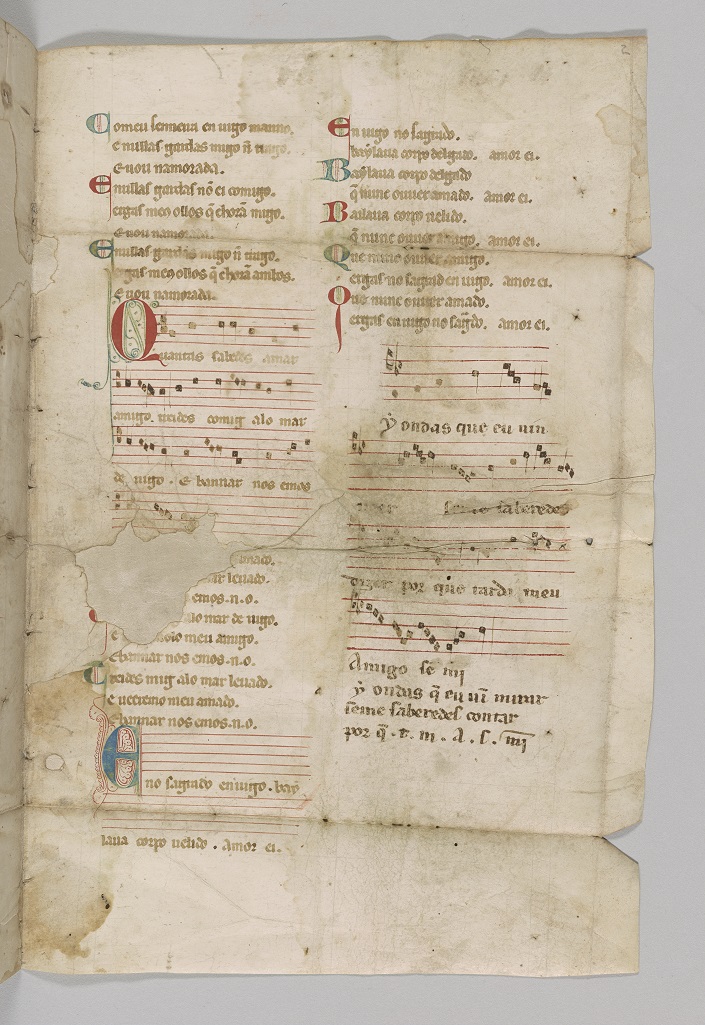 Comeu sennera en uigo manno.
e nullas gardas migo ñ trago.
E uou namorada.
E nullas gardas nõ ei comigo.
ergas meus ollos q̃ chorã migo.
E uou namorada.
E nullas gardas migo ñ trago.
ergas meus ollos q̃ chorã ambos.
E uou namorada.
Quantas sabedes amar
amigo. treides comig alo mar
de uigo. E bannar nos emos
mado.
ar leuado.
emos.n.o.
alo mar de uigo.
e meu amigo.
E bannar nos emos.n.o.
Treides mig alo mar leuado.
e ueeremo meu amado.
E bannar nos emos.n.o.
Eno sagrado en uigo. bay
laua corpo uelido. Amor ei.
En uigo no sagrado.
baylaua corpo delgado. amor ei.
Baylaua corpo delgado
q̃ nunc ouuer amado. amor ei.
Bailaua corpo uelido.
q̃ nunc ouuer amigo. amor ei.
Que nunc ouuer amigo.
ergas no sagrad en uigo. amor ei.
Que nunc ouuer amado.
ergas en uigo no sagrado. amor ei.
ay ondas que eu uin
ueer seme saberedes
dizer por que tarda meu
Amigo sẽ mĩ
ay ondas q̃ eu uĩ mirar
seme saberedes contar
por q̃ . t . m . A . s . mĩ